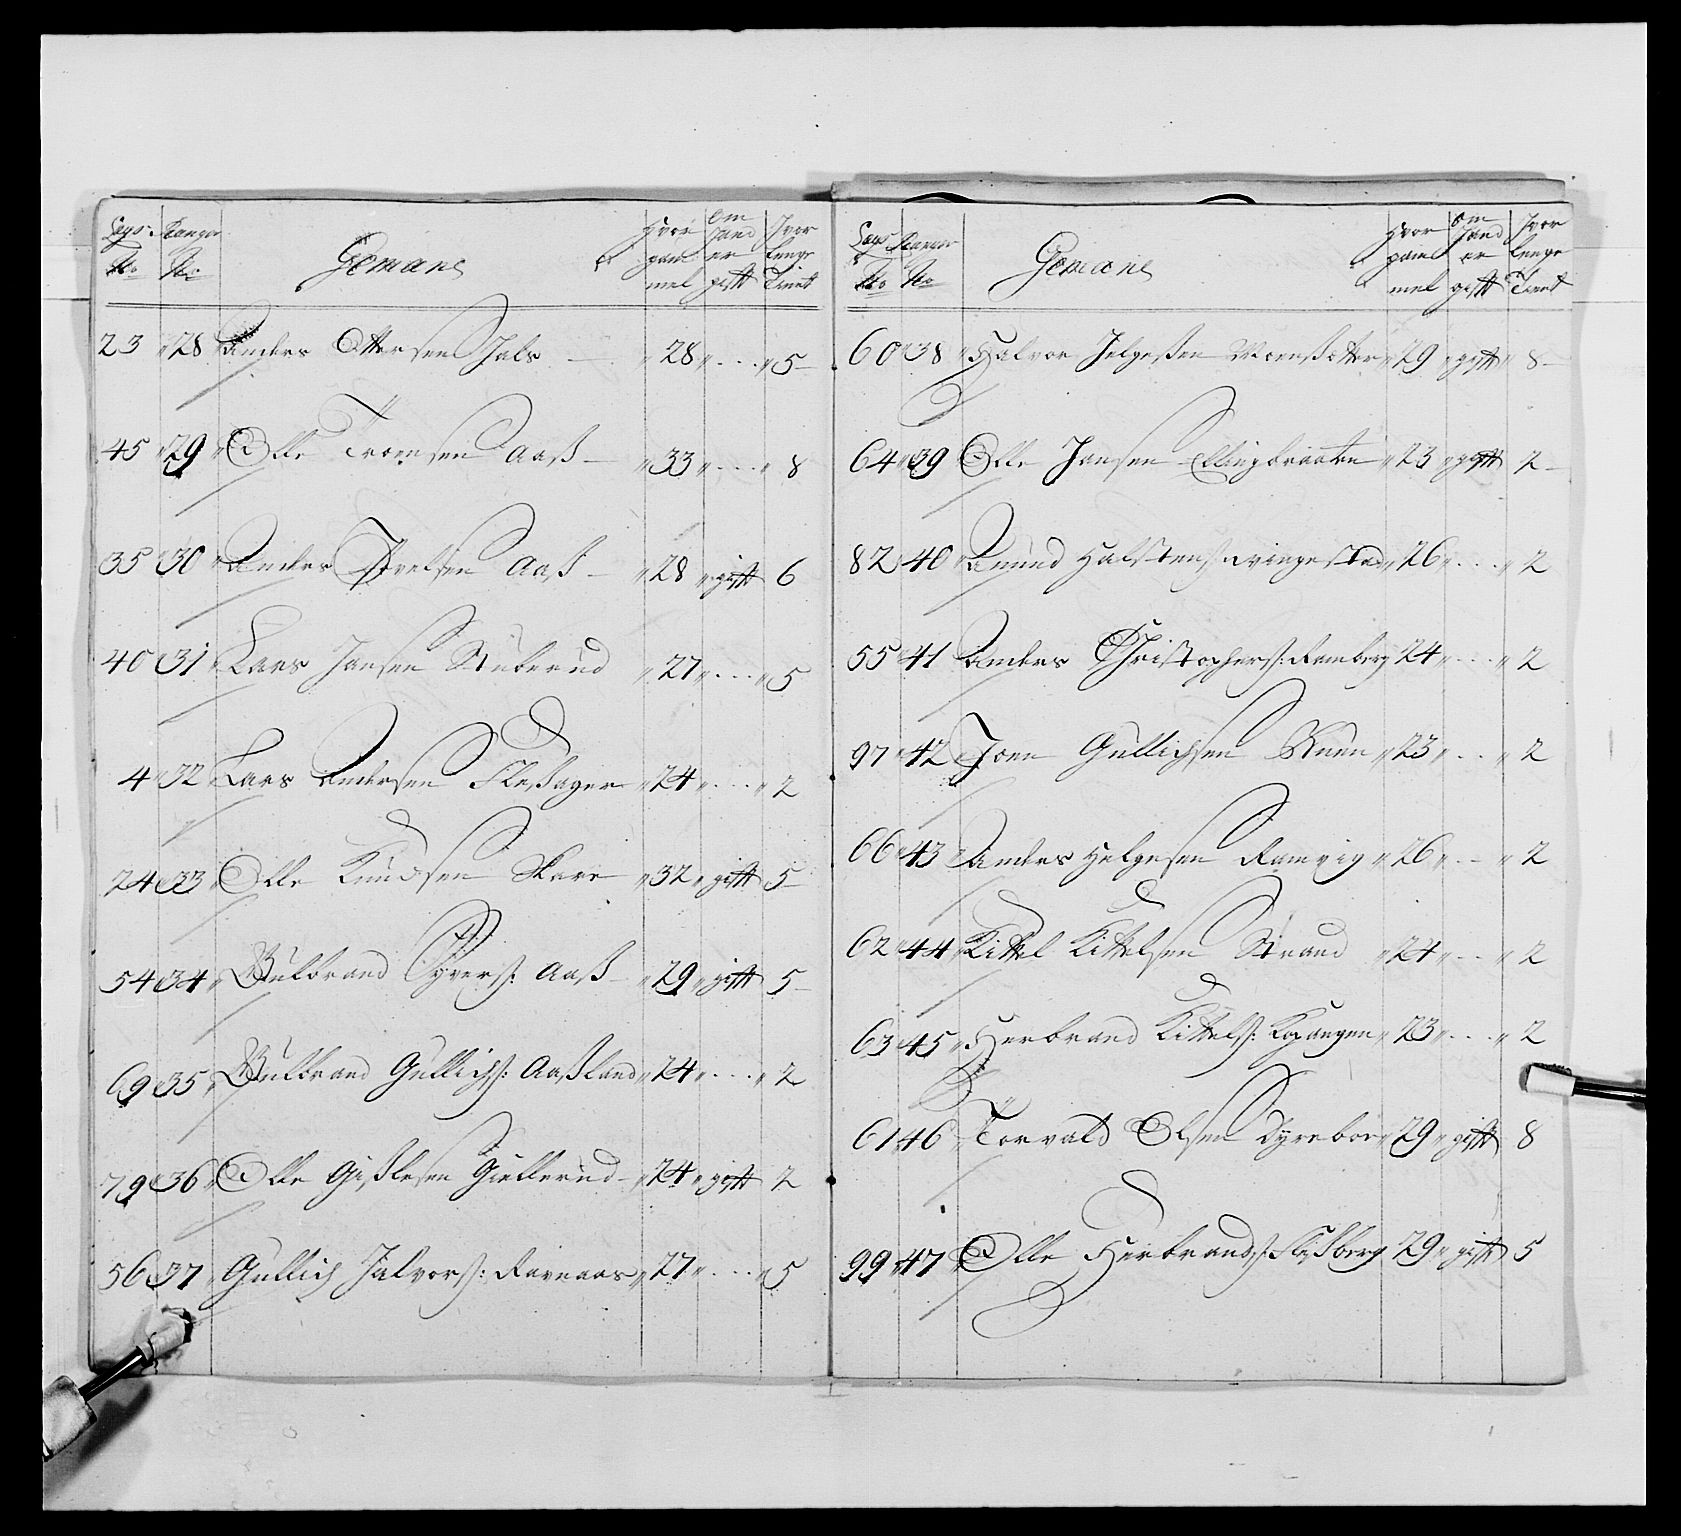 Legs No Rangr No Gemane Hvor gam mel Om hand er gift Hvor lenge Tient
23 28 Anders Ottersen Hals 28 5
45 29 Olle Troensen Aaß 33 8
35 30 Anders Iverlsen Aaß 28 gift 6
40 31 Lars Jansen Stuberud 27 5
4 32 Lars Andersen Fleßager 24 2
24 33 Olle Knudsen Skare 32 gift 5
54 34 Gulbrand Syvers: Aaß 29 gift 5
69 35 Gulbrand Gullichs: Aaßland 24 2
79 36 Olle Gißlesen Giellerud 24 gift 2
56 37 Gullich Halvors: Ravnaas 27 5
Legs No Rangr No Gemane Hvor gam mel Om hand er gift Hvor lenge Tient
60 38 Halvor Helgeßen Moenßetter 29 gift 8
64 39 Olle Jansen Ellingbraaten 23 gift 2
82 40 Amund Halstens: Tvingestad 26 2
55 41 Anders Christophers: Ramberg 24 2
97 42 Joen Gullichsen Ruen 23 2
66 43 Anders Helgesen Ramvig 26 2
62 44 Kittel Kittelsen Strand 24 2
63 45 Herbrand Kittels: Kopangen 23 2
61 46 Torvald Olsen Dyreboe 29 gift 8
99 47 Olle Herbrands: Fleßberg 29 gift 5